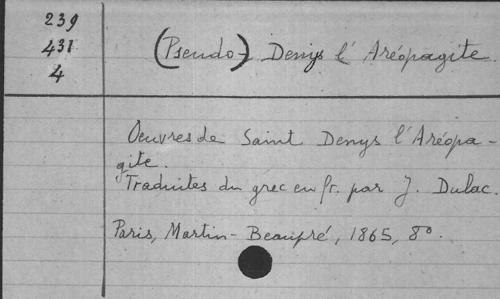 239
431
4
(Pseudo-) Denys l'Aréopagite.
Oeuvres de Saint Denys l'Aréopa-
gite.
Traduites du grec en fr. par J. Dulac.
Paris, Martin-Beaupré, 1865, 8°.